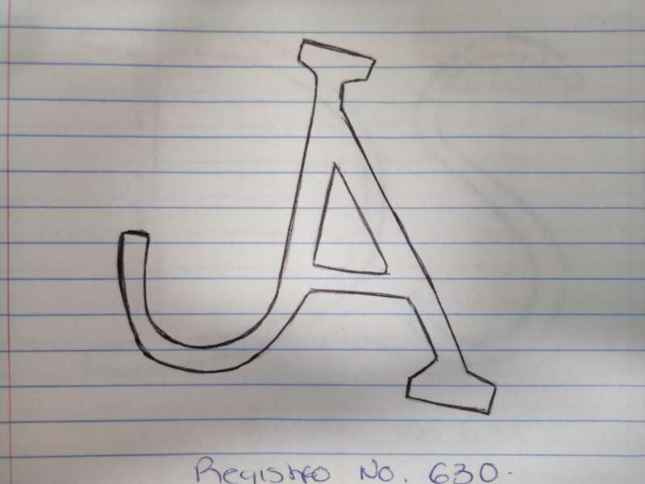 JA
Registro No. 630.